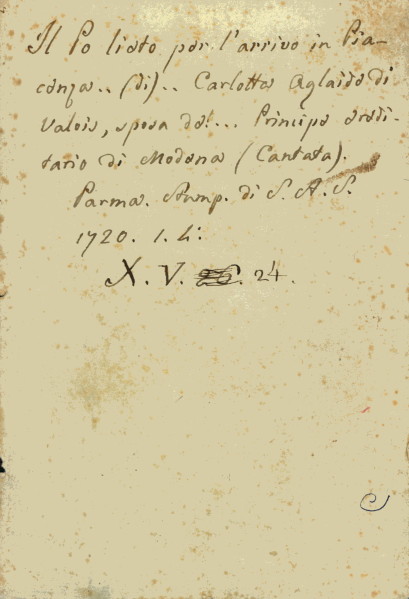 Il Po lieto per l'arrivo in Pia-
cenza.. (di).. Carlotta Aglaide di
Valois, sposa del... Principe eredi-
tario di Modena (Cantata).
Parma. Stamp. di S. A. S.
1720. 1. 4:
X. V. 24.